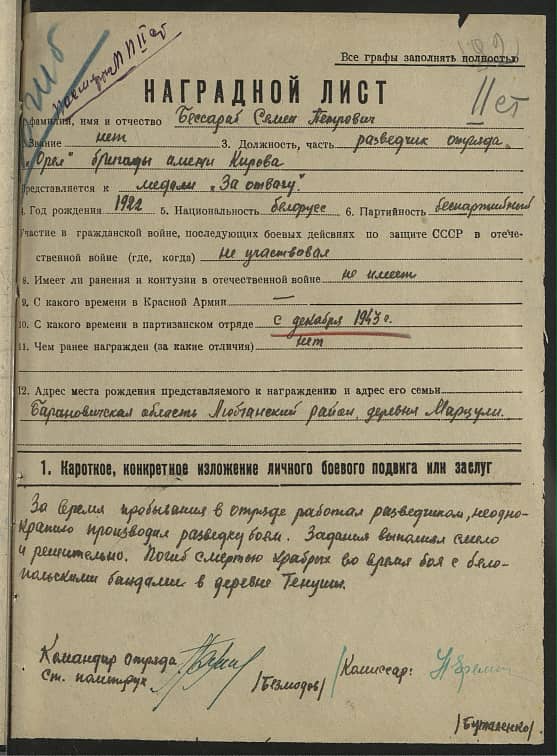 Все графы заполнять полностью
НАГРАДНОЙ ЛИСТ
IIст
фамилия, имя и отчество Бессараб Семен Петрович
Звание нет 3. Должность, часть разведчик отряда
"Орел" бригады имени Кирова
Представляется к медали "За отвагу".
4. Год рождения 1922 5. Национальность белорусс 6. Партийность беспартийный
Участие в гражданской войне, последующих боевых действях по защите СССР в отече-
ственной войне (где, когда) не участвовал
8. Имеет ли ранения и контузии в отечественной войне не имеет
9. С какого времени в Красной Армии —
10. С какого времени в партизанском отряде с декабря 1943 г.
11. Чем ранее награжден (за какие отличия) нет
12. Адрес места рождения представляемого к награждению и адрес его семьи
Барановичская область Любчанский район, деревня Марцули.
1. Короткое, конкретное изложение личного боевого подвига или заслуг
За время пробывания в отряде работал разведчиком, неодно-
кратно производил разведку боем. Задания выполнял смело
и решительно. Погиб смертью храбрых во время боя с бело-
польскими бандами в деревне Тенушки.
Командир отряда
Ст. политрук /Безмодов/ /Комиссар:
/Буталенко/